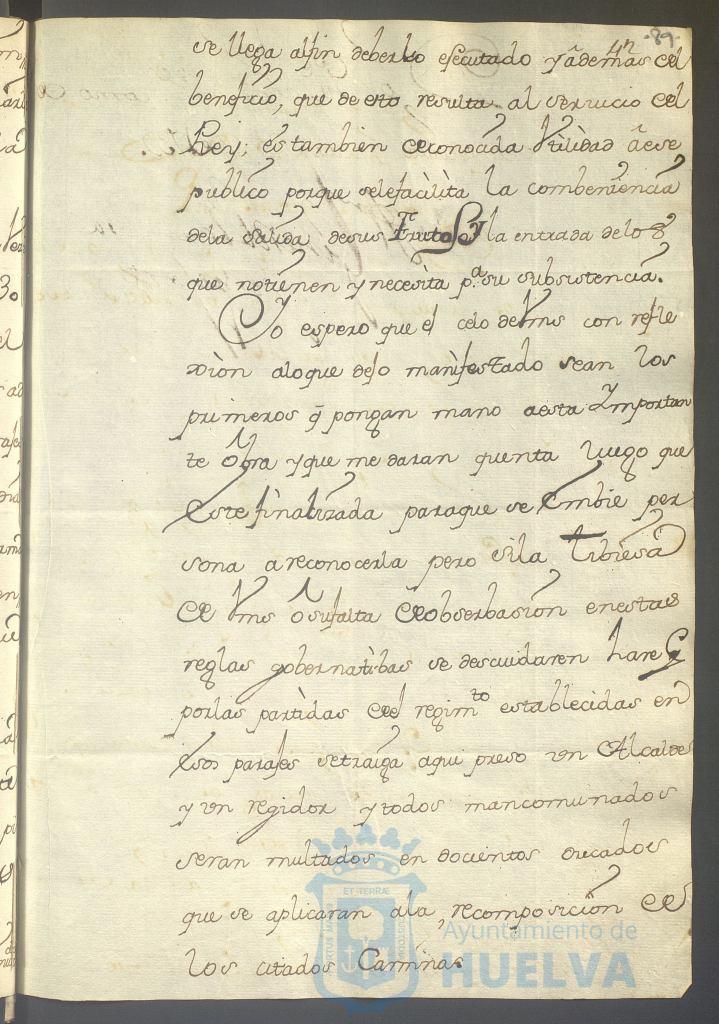 -89-
se llega alfin deberlo efecutado y ademas del
beneficio, que de esto resulta al servicio del
Rey; es tambien reconocida Utilidad a ese
publico porque selefàcilita la combeniencia
dela Salida desus Frutos y la entrada delos
que notienen y necesita p.ª su subsistencia.
Yo espero que el celo deVms con refle
xion aloque dejo manifestado sean los
primeros q pongan mano aesta Importan
te Obra yque me daran quenta luego que
Este finalizada paraque se Embie per
sona areconocerla pero sila tibiesa
de Vms o sufalta de obserbasion enestas
reglas gobernatibas se descuidaren hare q
porlas partidas del regimto establecidas en
Esos parajes setraiga aqui preso un Alcalde
y un regidor y todos mancomunados
seran multados en docientos ducados
que se aplicaran ala recomposicion de
los citados Caminos.
ET TERRÆ
Ayuntamiento de
HUELVA